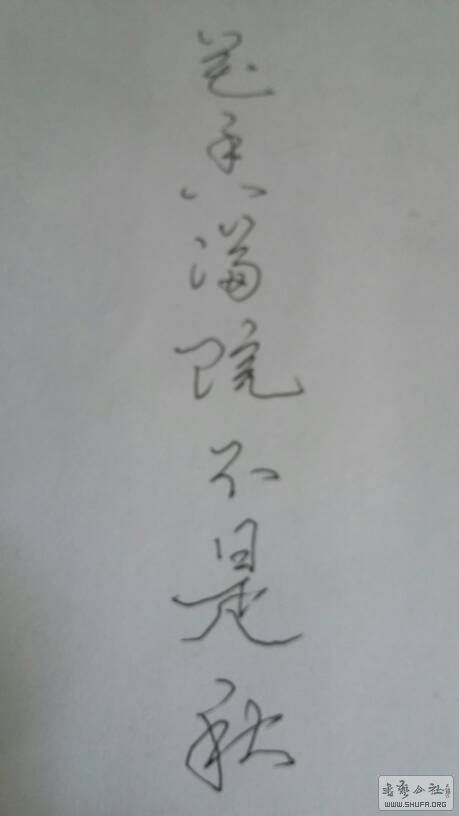 花香满院不是秋
書法公社
WWW.SHUFA.ORG